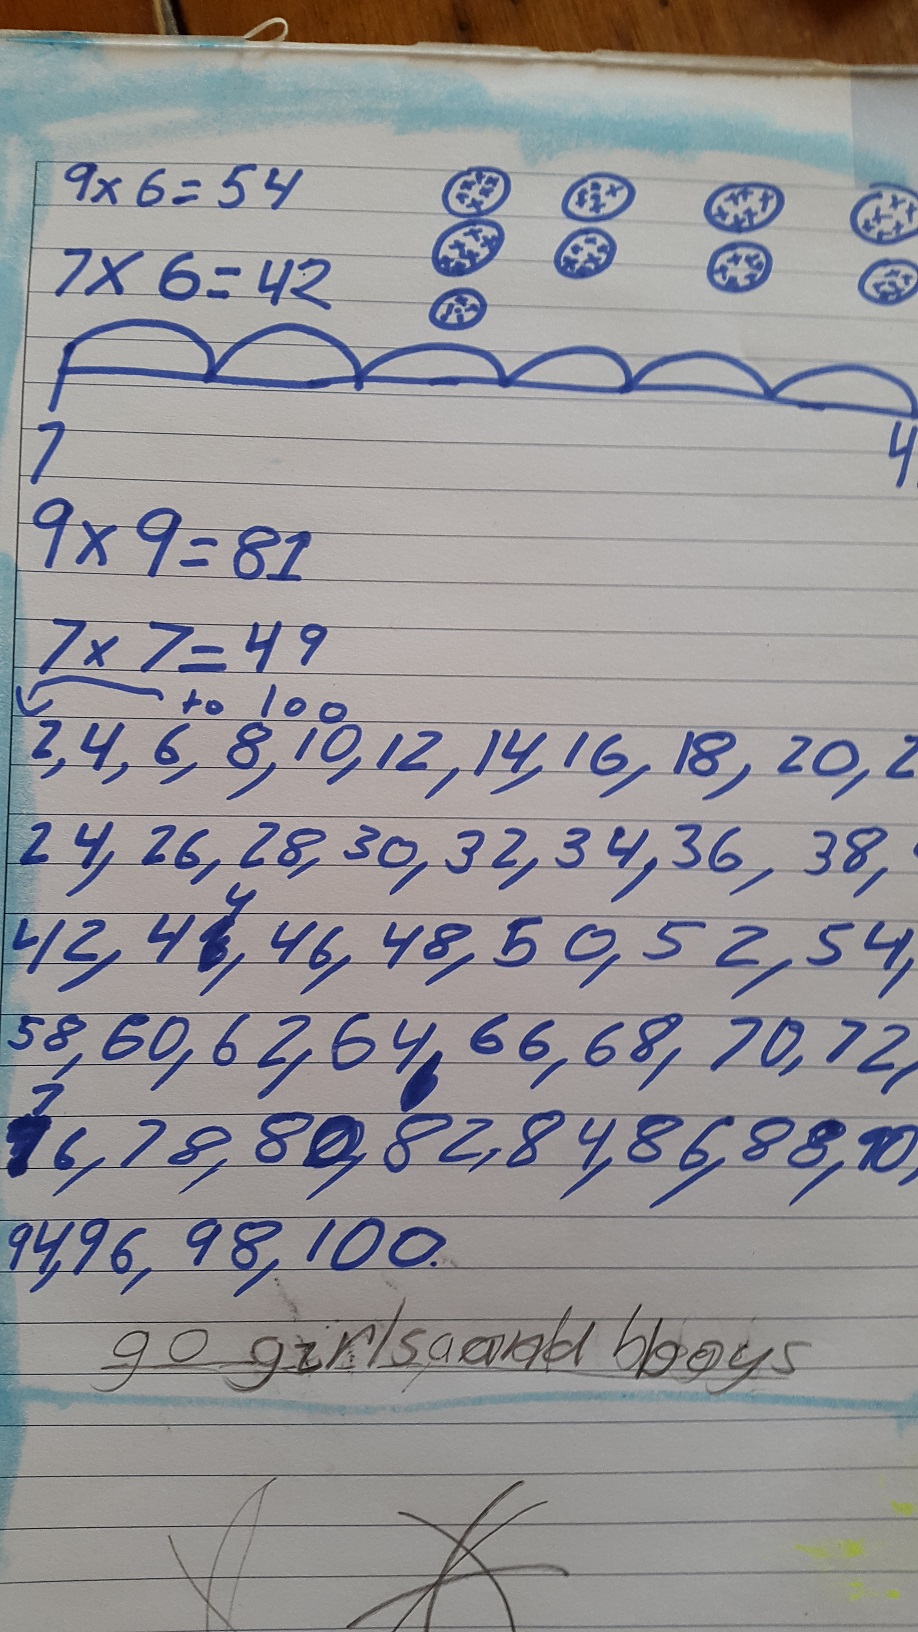 9x6=54
7x6=42
7 4
9x9=81
7x7=49
to 100
2,4,6,8,10,12,14,16,18,20,2
24,26,28,30,32,34,36,38,
42,44,46,48,50,52,54,
58,60,62,64,66,68,70,72,
76,78,80,82,84,86,88,90,
94,96,98,100.
go girls and boys